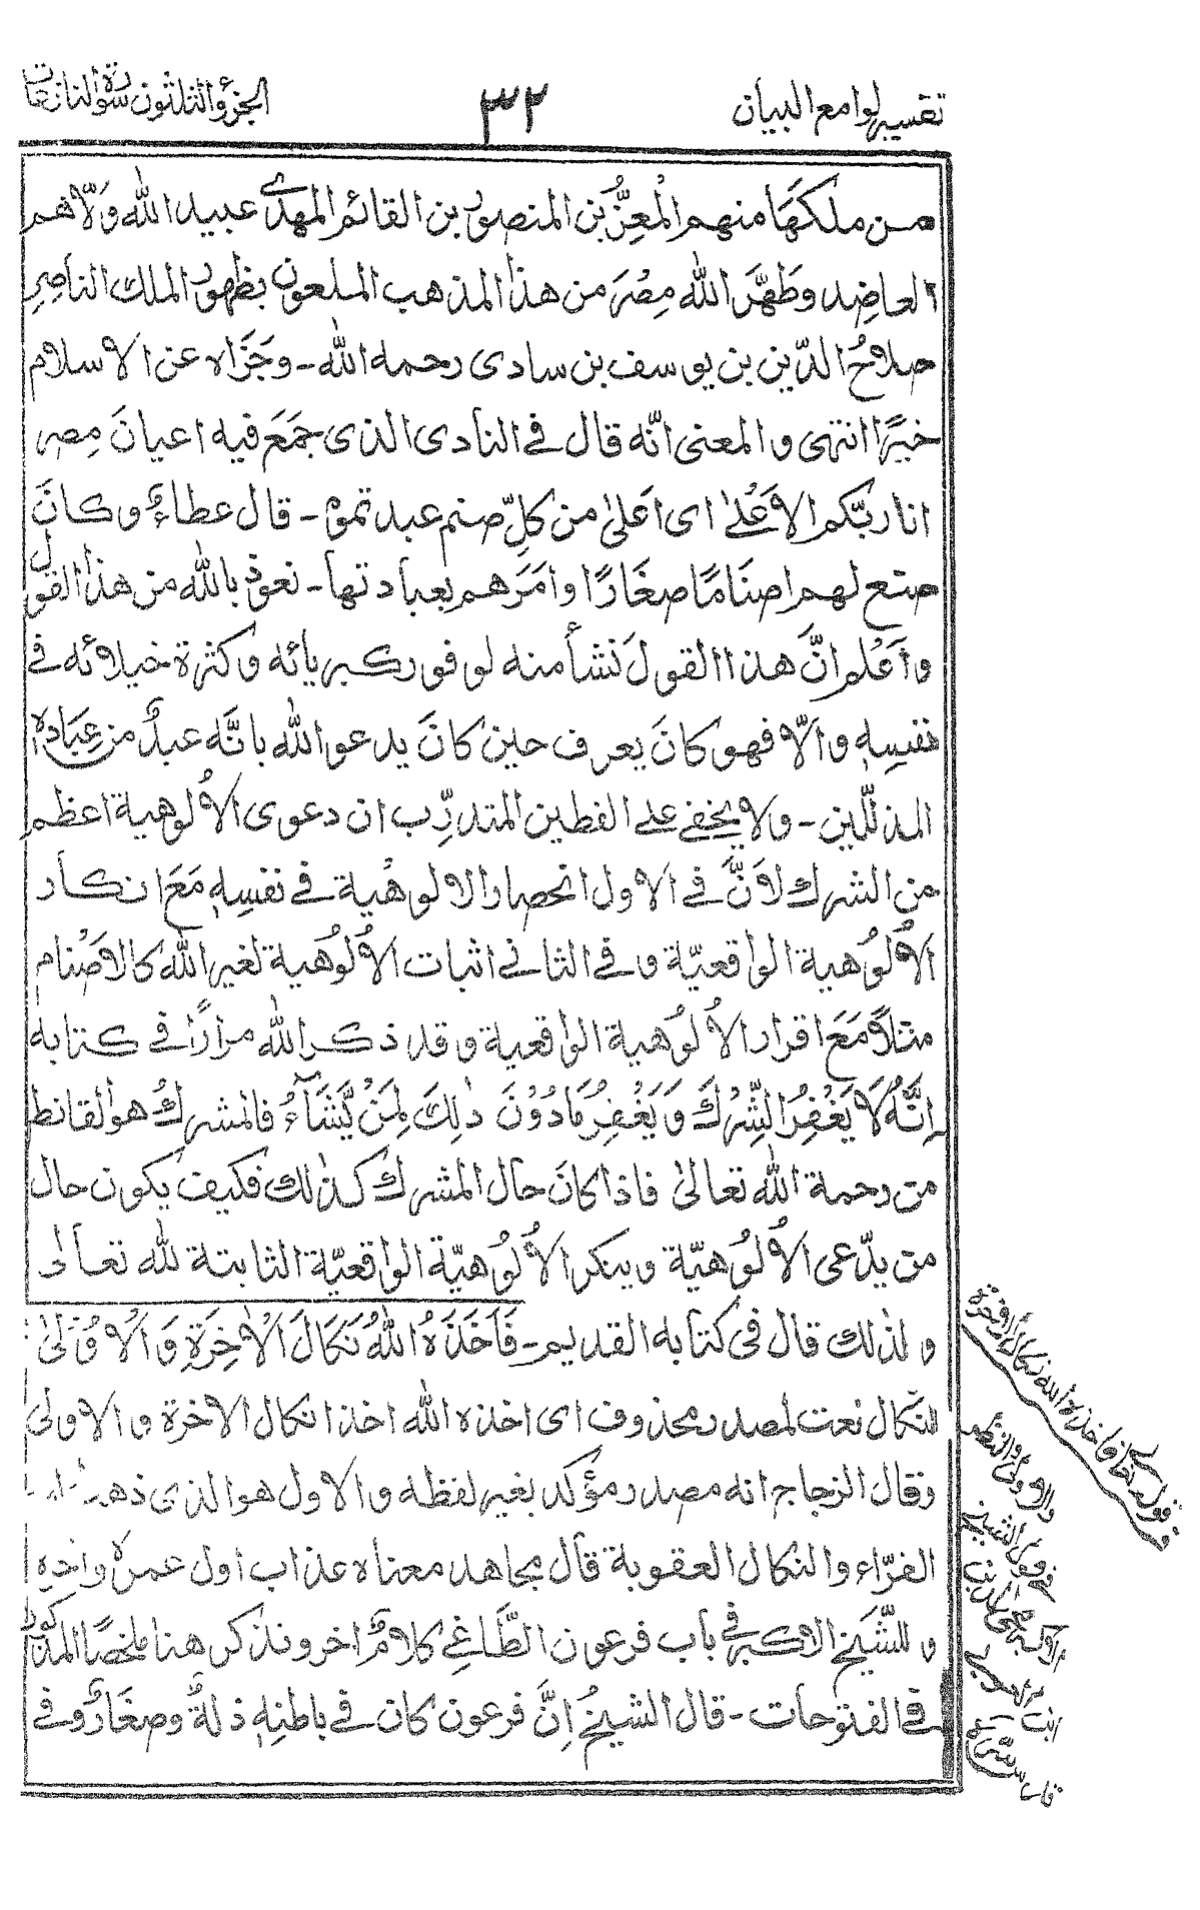 تفسير لوامع البيان
٣٢
الجزء الثلثون سورة والنازعات
من ملكها منهم المُعِزُّ بن المنصور بن القائم المهدى عبيد الله ولّاهم
العاضِد وطَهَّرَ الله مِصْرَ من هذا المذهب الملعون بظهور الملك الناصِرِ
صلاحُ الدّين بن يوسف بن سادى رحمه الله - وجَزَاه عن الاسلام
خيرًا انتهى والمعنى انّه قال فى النادى الذى جَمَعَ فيه اعيانَ مِصر
انا ربّكم الاَعْلىٰ اى اَعلىٰ من كلِّ صنم عبدتموه - قال عطاءٌ وكانَ
صنع لهم اصنَامًا صغَارًا وامَرَهم بعبادتها - نعوذ بالله من هذا القول
واَعْلم انَّ هذا القولَ نشأ منه لوفور كبريائه وكثرة خيلائه فى
نفسِهٖ والّا فهو كانَ يعرف حين كانَ يدعو الله بانَّه عبدٌ من عِبَادِهِ
المذلّلين - ولا يخفى على الفطين المتدرِّب ان دعوى الاُلوهية اعظم
من الشرك لاَنَّ فى الاول انحصار الالوهْية فى نفسِهٖ مَعَ انكار
الاُلُوْهية الواقعيّة وفى الثانى اثبات الاُلُوْهية لغير الله كالاَصْنام
مثلاً مَعَ اقرار الاُلُوْهية الواقعية وقد ذكر الله مرارًا فى كتابه
اِنَّهُ لَا يَغْفِرُ الشِّرْكَ وَيَغْفِرُ مَا دُوْنَ ذٰلِكَ لِمَنْ يَّشَآءُ فالمشركُ هو القانط
من رحمة الله تعالىٰ فاذا كانَ حال المشرك كذٰلك فكيف يكون حال
من يدّعى الاُلُوْهيّة وينكر الاُلُوْهيّة الواقعيّة الثابتة لله تعالىٰ
ولذلك قال فى كتابه القديم - فَاَخَذَهُ اللهُ نَكَالَ الْاٰخِرَةِ وَالْاُوْلىٰ
النكال نعت لمصدر محذوف اى اخذه الله اخذا نكال الاخرة والاولىٰ
وقال الزجاج انه مصدر مؤكد بغير لفظه والاول هو الذى ذهب
الفرّاء والنكال العقوبة قال مجاهد معناه عذاب اول عمره واخره
وللشّيخ الاكبر فى باب فرعون الطّاغى كلامٌ اخر ونذكر هنا ملخصًا المذكور
فى الفتوحات - قال الشيخُ اِنَّ فرعون كان فى باطنِهٖ ذلةٌ وصغَارٌ وفى
فى قوله تعالى فاخذه الله نكال الاخرة
والاولى